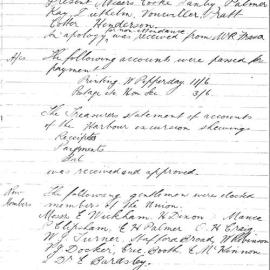 Present Messrs Cocke Hanby Palmer
Ray Wilhelm, Vonwiller Pratt
Cotter Henderson.
An apology for non attendance was received from W R
A/cs The following accounts were passed for
payment.
Printing W Pepperday 11/6
Postage 3/6
The Treasurers statement of accounts
of the Harbour excursion shewing
Receipts
Payments
Bal
was received and approved.
New Members The following gentlemen were elected
members of the Union.
Messrs E Wickham H Dixon Mance
Elipham, E H Palmer C H Craig
W J Turner, Stafford Broad, W Robinson
P J Docker, Eric Booth E McKinnon
Dr E Bardsley